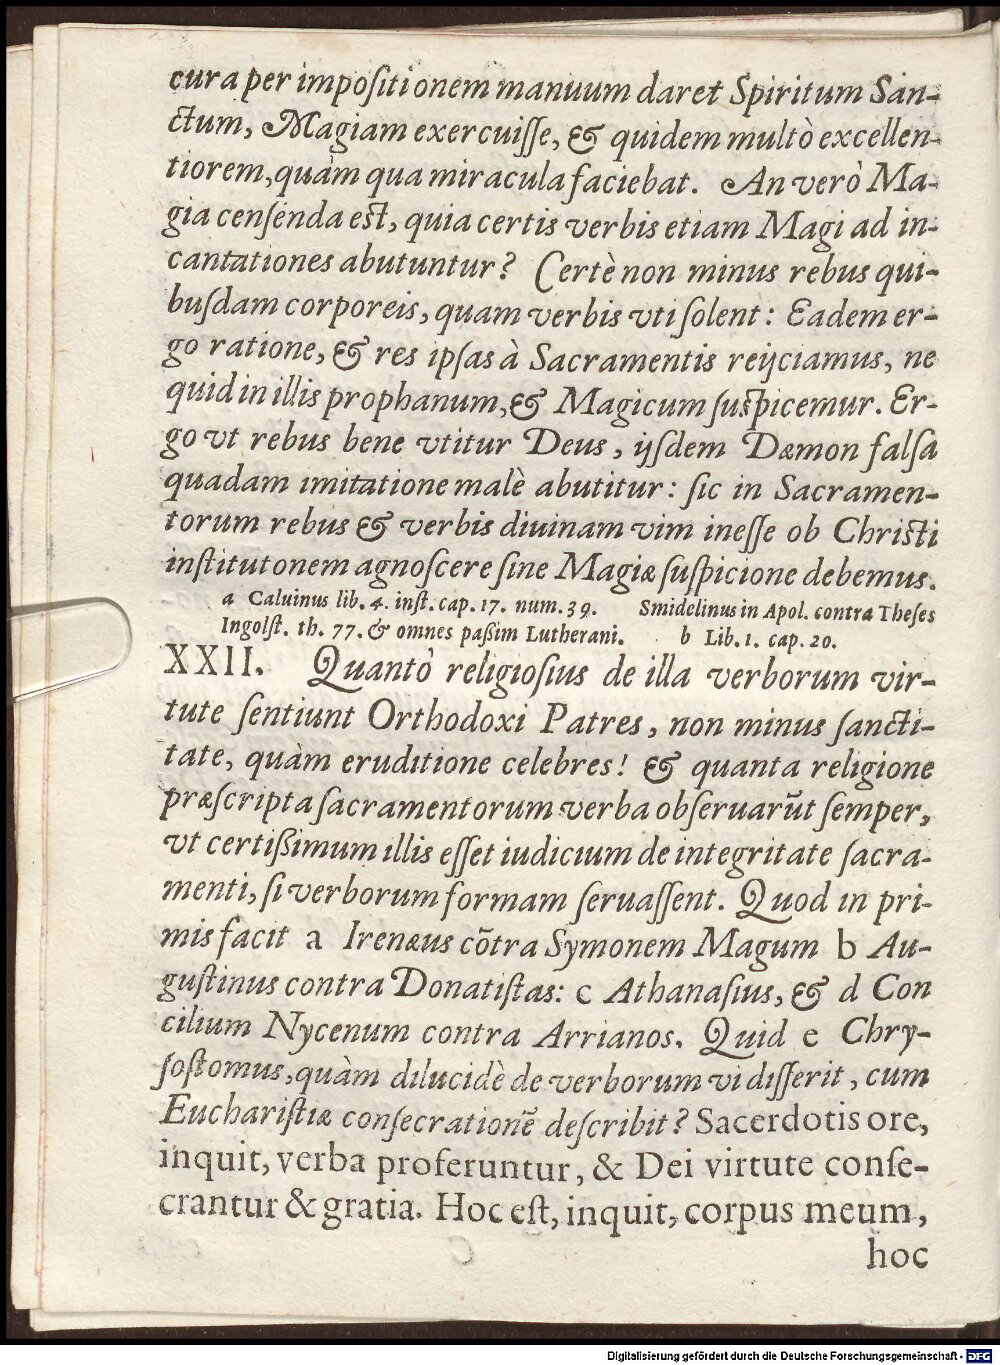 cura per impoſitionem manuum daret Spiritum San-
ctum, Magiam exercuiſſe, & quidem multò excellen-
tiorem, quàm qua miracula faciebat. An verò Ma-
gia cenſenda est, quia certis verbis etiam Magi ad in-
cantationes abutuntur? Certè non minus rebus qui-
buſdam corporeis, quam verbis vti ſolent: Eadem er-
go ratione, & res ipſas à Sacramentis reijciamus, ne
quid in illis prophanum, & Magicum ſuſpicemur. Er-
go vt rebus bene vtitur Deus, ijſdem Dæmon falſa
quadam imitatione malè abutitur: ſic in Sacramen-
torum rebus & verbis diuinam vim ineſſe ob Christi
inſtitutonem agnoſcere ſine Magiæ ſuſpicione debemus.
a Caluinus lib. 4. inſt. cap. 17. num. 39. Smidelinus in Apol. contra Theſes
Ingolſt. th. 77. & omnes paßim Lutherani. b Lib. 1. cap. 20.
XXII. Quantò religioſius de illa verborum vir-
tute ſentiunt Orthodoxi Patres, non minus ſancti-
tate, quàm eruditione celebres! & quanta religione
præſcripta ſacramentorum verba obſeruarūt ſemper,
vt certißimum illis eſſet iudicium de integritate ſacra-
menti, ſi verborum formam ſeruaſſent. Quod in pri-
mis facit a Irenæus cōtra Symonem Magum b Au-
guſtinus contra Donatiſtas: c Athanaſius, & d Con
cilium Nycenum contra Arrianos. Quid e Chry-
ſoſtomus, quàm dilucidè de verborum vi diſſerit, cum
Euchariſtiæ conſecrationē deſcribit? Sacerdotis ore,
inquit, verba proferuntur, & Dei virtute conſe-
crantur & gratia. Hoc eſt, inquit, corpus meum,
hoc
Digitalisierung gefördert durch die Deutsche Forschungsgemeinschaft - DFG